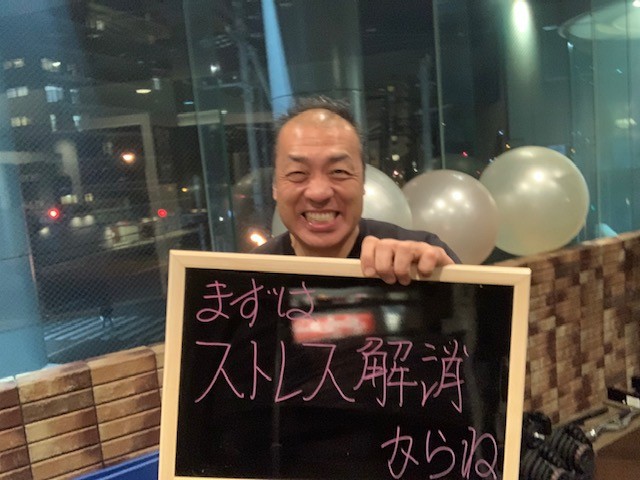 まずは
ストレス解消
からね